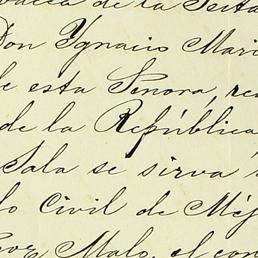 de la Secta
Don Ygnacio Mari
de esta Senora, re
de la República
Sala se sirva
lo Civil de Méj
Malo, el con